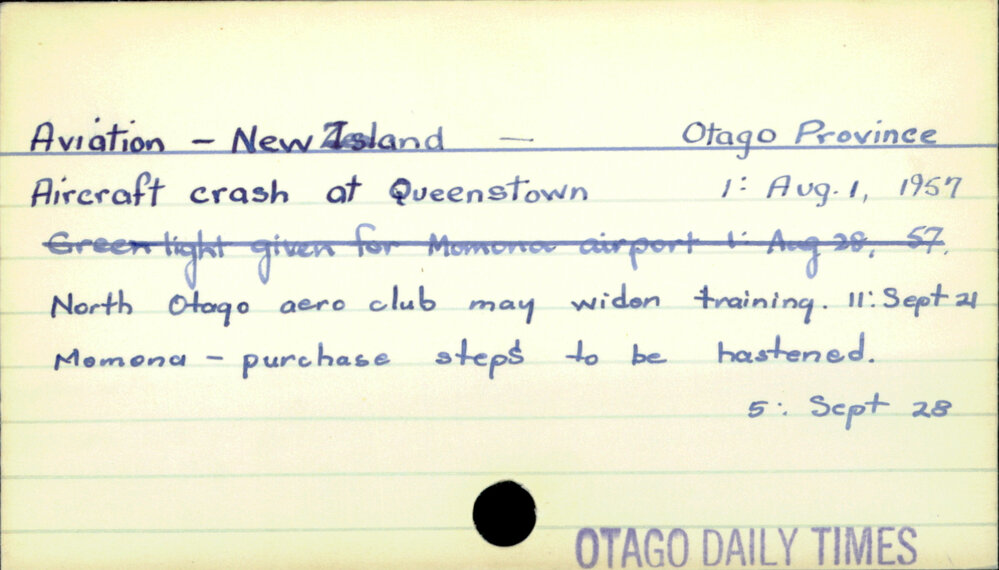 Aviation - New Zealand - Otago Province
Aircraft crash at Queenstown 1: Aug. 1, 1957
Green light given for Momona airport 1: Aug 28, 57.
North Otago aero club may widen training. 11: Sept 21
Momona - purchase steps to be hastened.
5: Sept 28
OTAGO DAILY TIMES